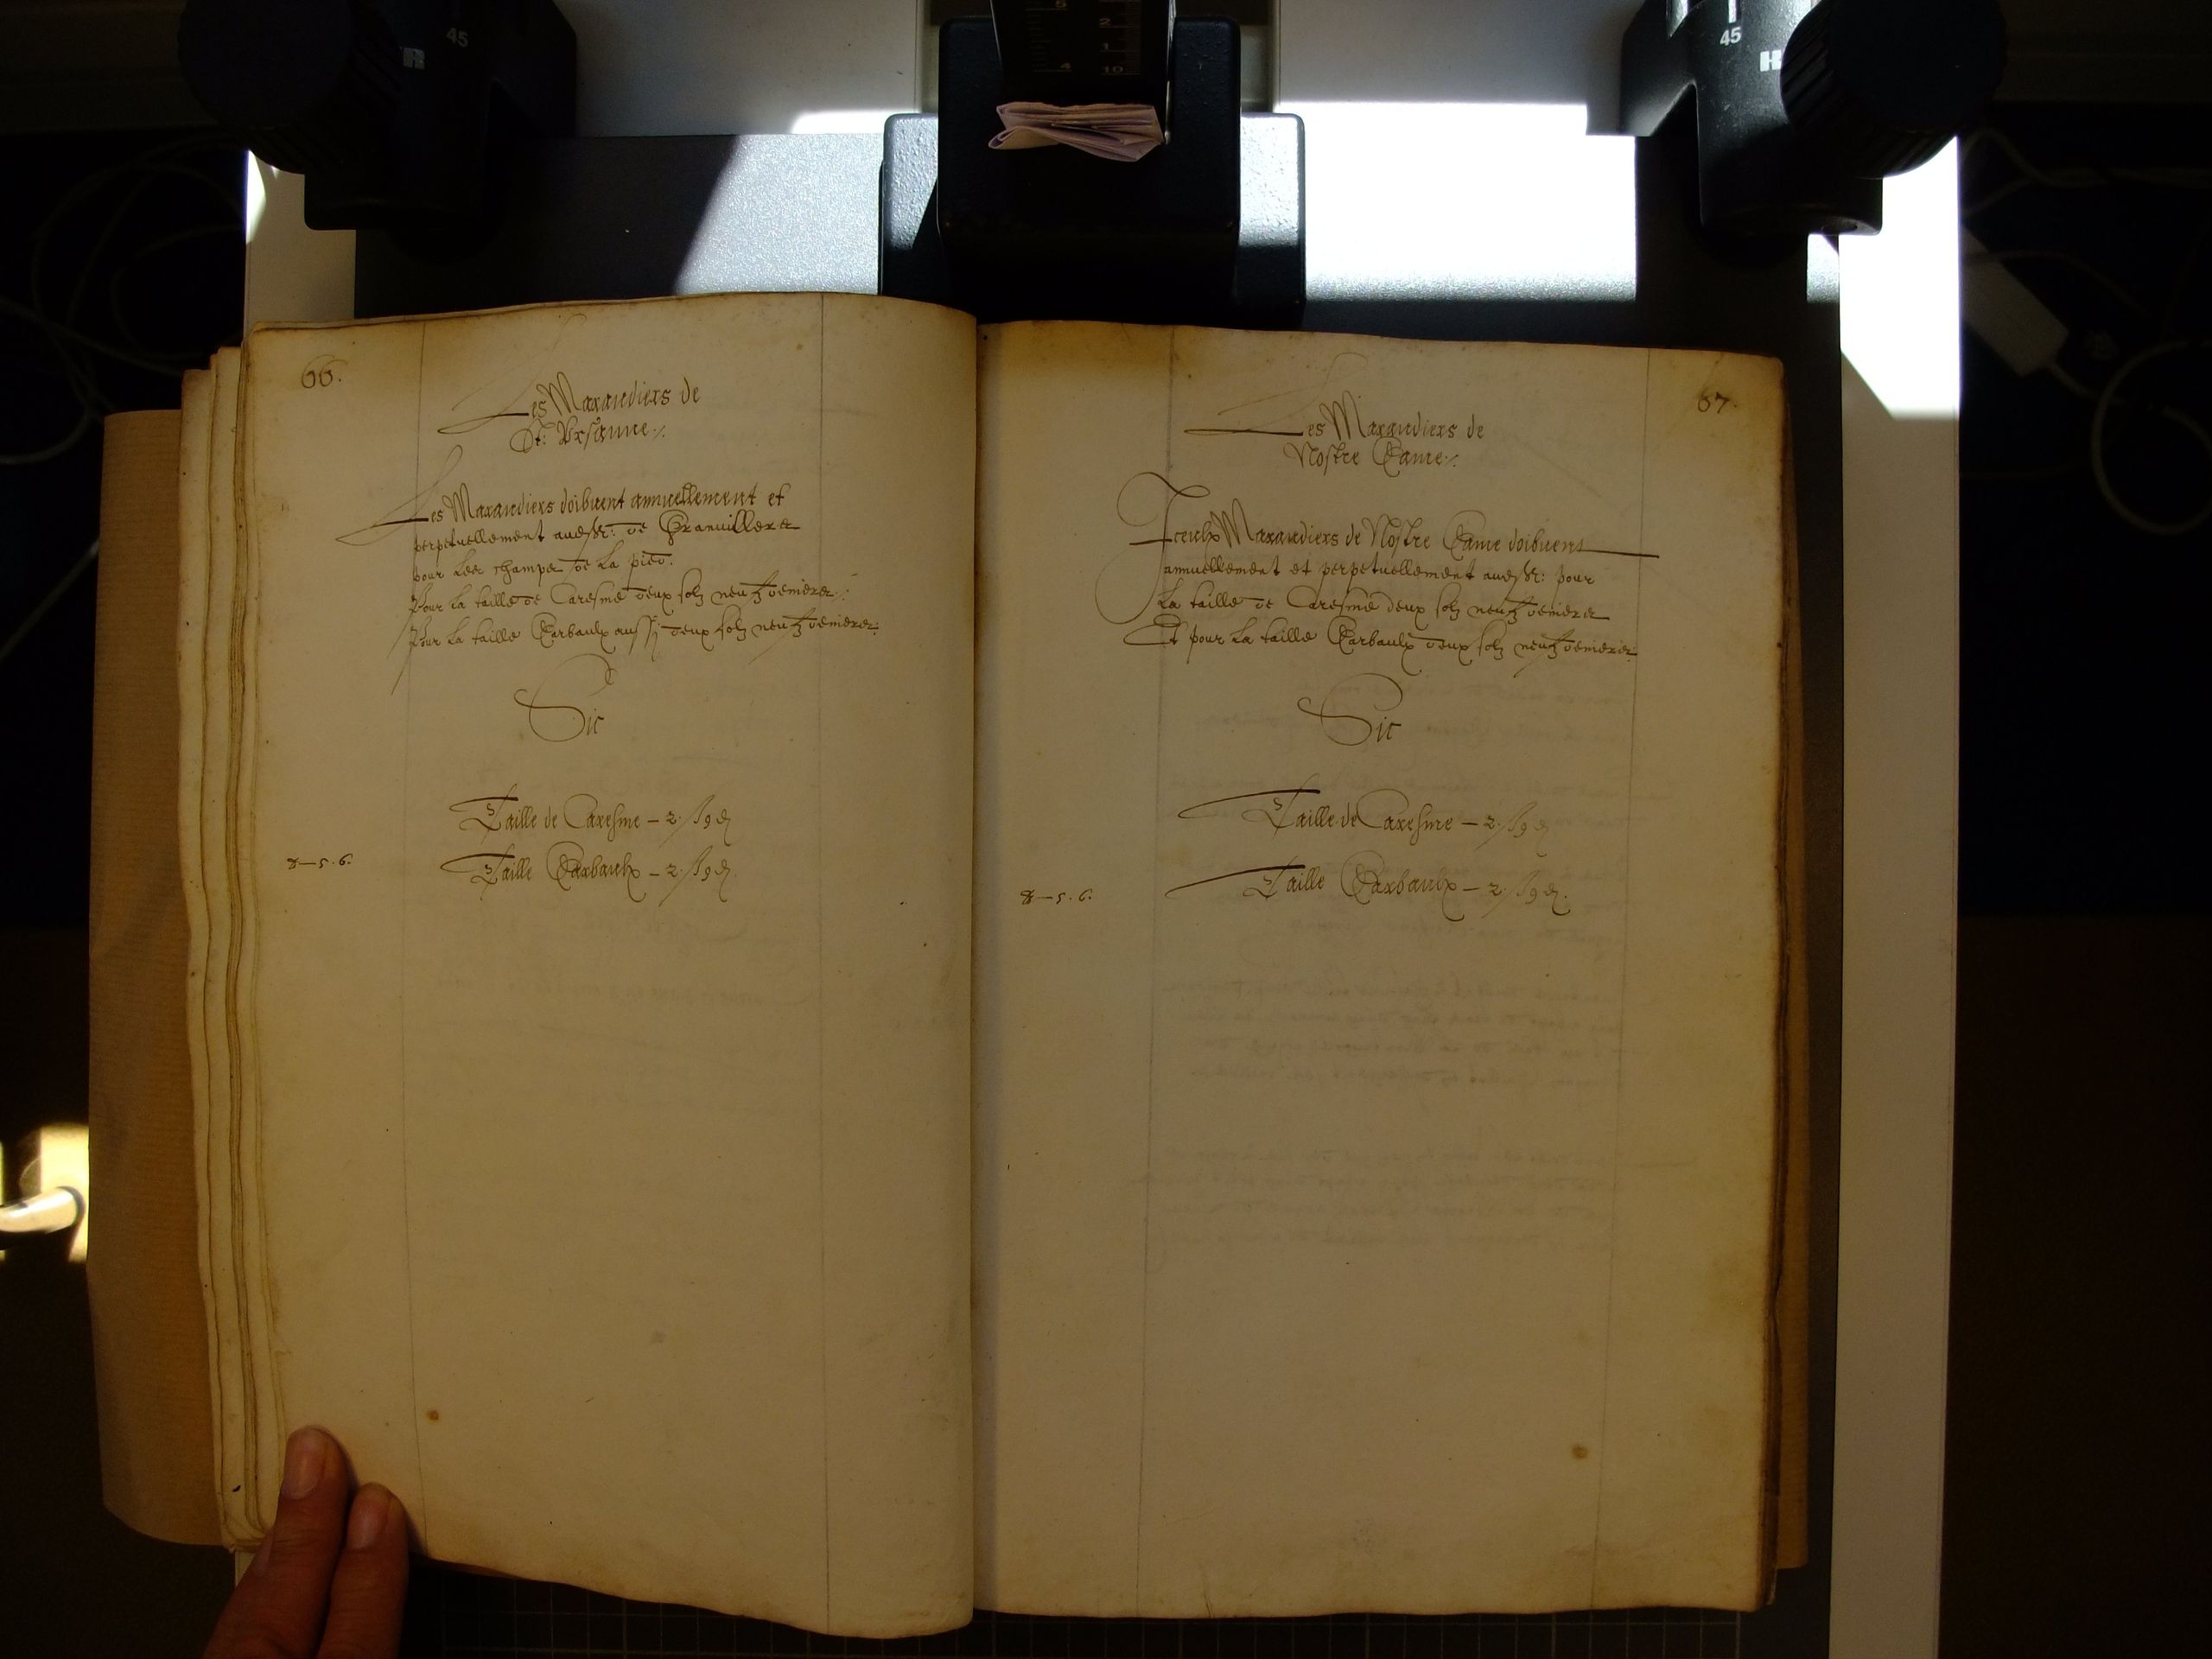 66.
Les Maraudiers de
St: Vrsanne ./.
Les Maraudiers doibuent annuellement et
perpetuellement audsr: de Granuillers
pour les champs de la pied.
Pour la taille de Caresme deux solz neufz deniers ./.
Pour la taille Carbaulx aussi deux solz neufz deniers.
Sic
Taille de Caresme — 2 ß 9 d.
Taille Carbaulx — 2 ß 9 d.
— 5 . 6.
67.
Les Maraudiers de
Nostre Dame ./.
Iceulx Maraudiers de Nostre Dame doibuent
annuellement et perpetuellement audsr: pour
la taille de Caresme deux solz neufz deniers
Et pour la taille Carbaulx deux solz neufz deniers.
Sic
Taille de Caresme — 2 ß 9 d.
Taille Carbaulx — 2 ß 9 d.
— 5 . 6.
45
H
45
H